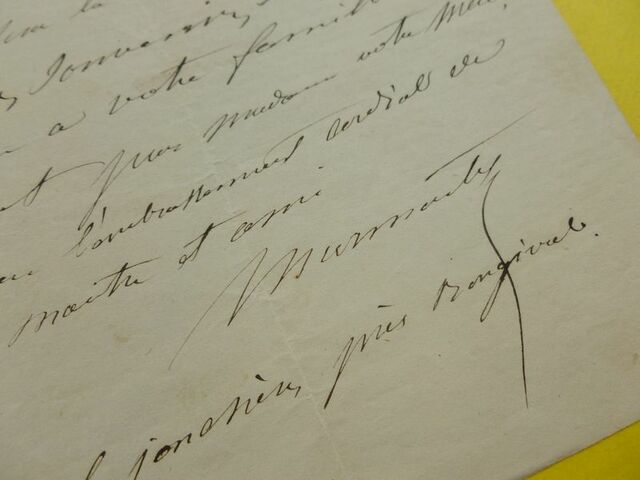 souvenirs
à votre famille
pour madame votre mère,
l'embrassement cordial de
maître et ami.
Marmontel
jonchère, près Bougival.